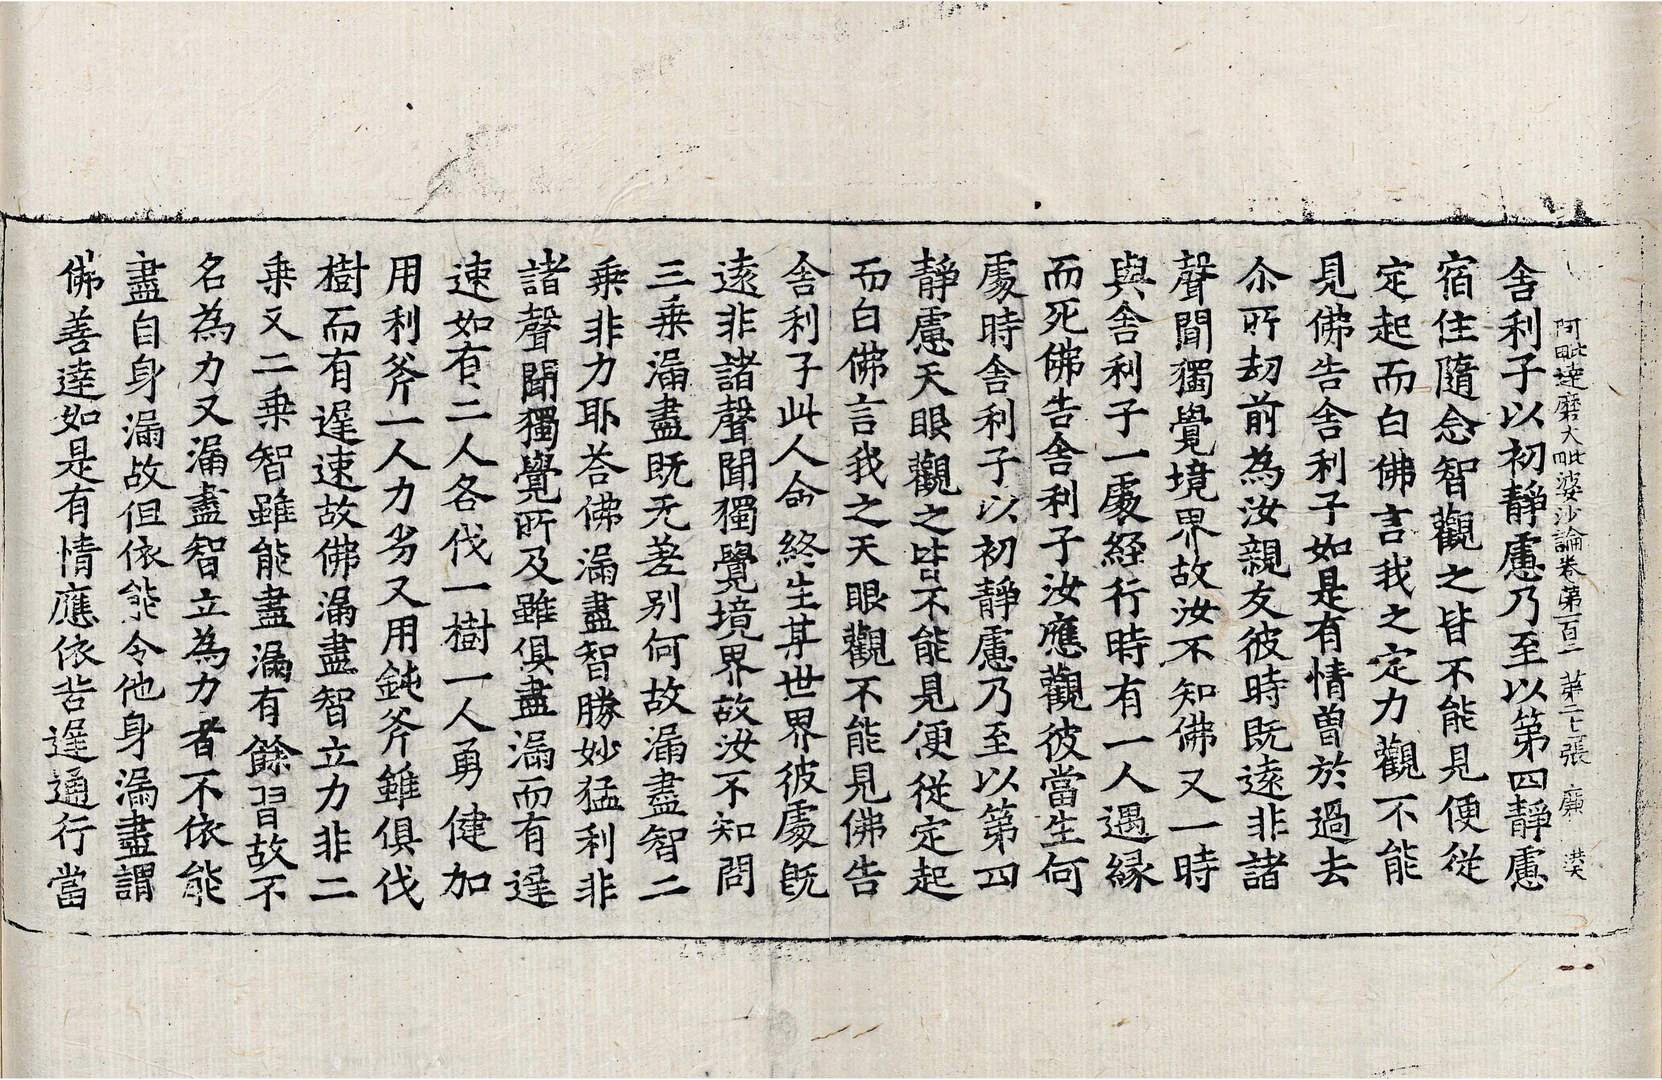 阿毗達磨大毗婆沙論卷第一百二 第二七張 廉
舎利子以初靜慮乃至以第四靜慮
宿住隨念智觀之皆不能見便從
定起而白佛言我之定力觀不能
見佛告舎利子如是有情曽於過去
尒所劫前為汝親友彼時既遠非諸
聲聞獨覺境界故汝不知佛又一時
與舎利子一處経行時有一人遇縁
而死佛告舎利子汝應觀彼當生何
處時舎利子以初靜慮乃至以第四
靜慮天眼觀之皆不能見便從定起
而白佛言我之天眼觀不能見佛告
舎利子此人命終生某世界彼處既
遠非諸聲聞獨覺境界故汝不知問
三乗漏盡既无差別何故漏盡智二
乗非力耶荅佛漏盡智勝妙猛利非
諸聲聞獨覺所及雖俱盡漏而有遅
速如有二人各伐一樹一人勇健加
用利斧一人力劣又用鈍斧雖俱伐
樹而有遅速故佛漏盡智立力非二
乗又二乗智雖能盡漏有餘習故不
名為力又漏盡智立為力者不依能
盡自身漏故但依能令他身漏盡謂
佛善達如是有情應依苦遅通行當